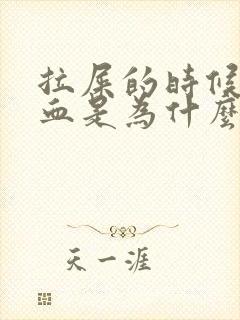 拉屎的時候
血是為什麼
天一涯